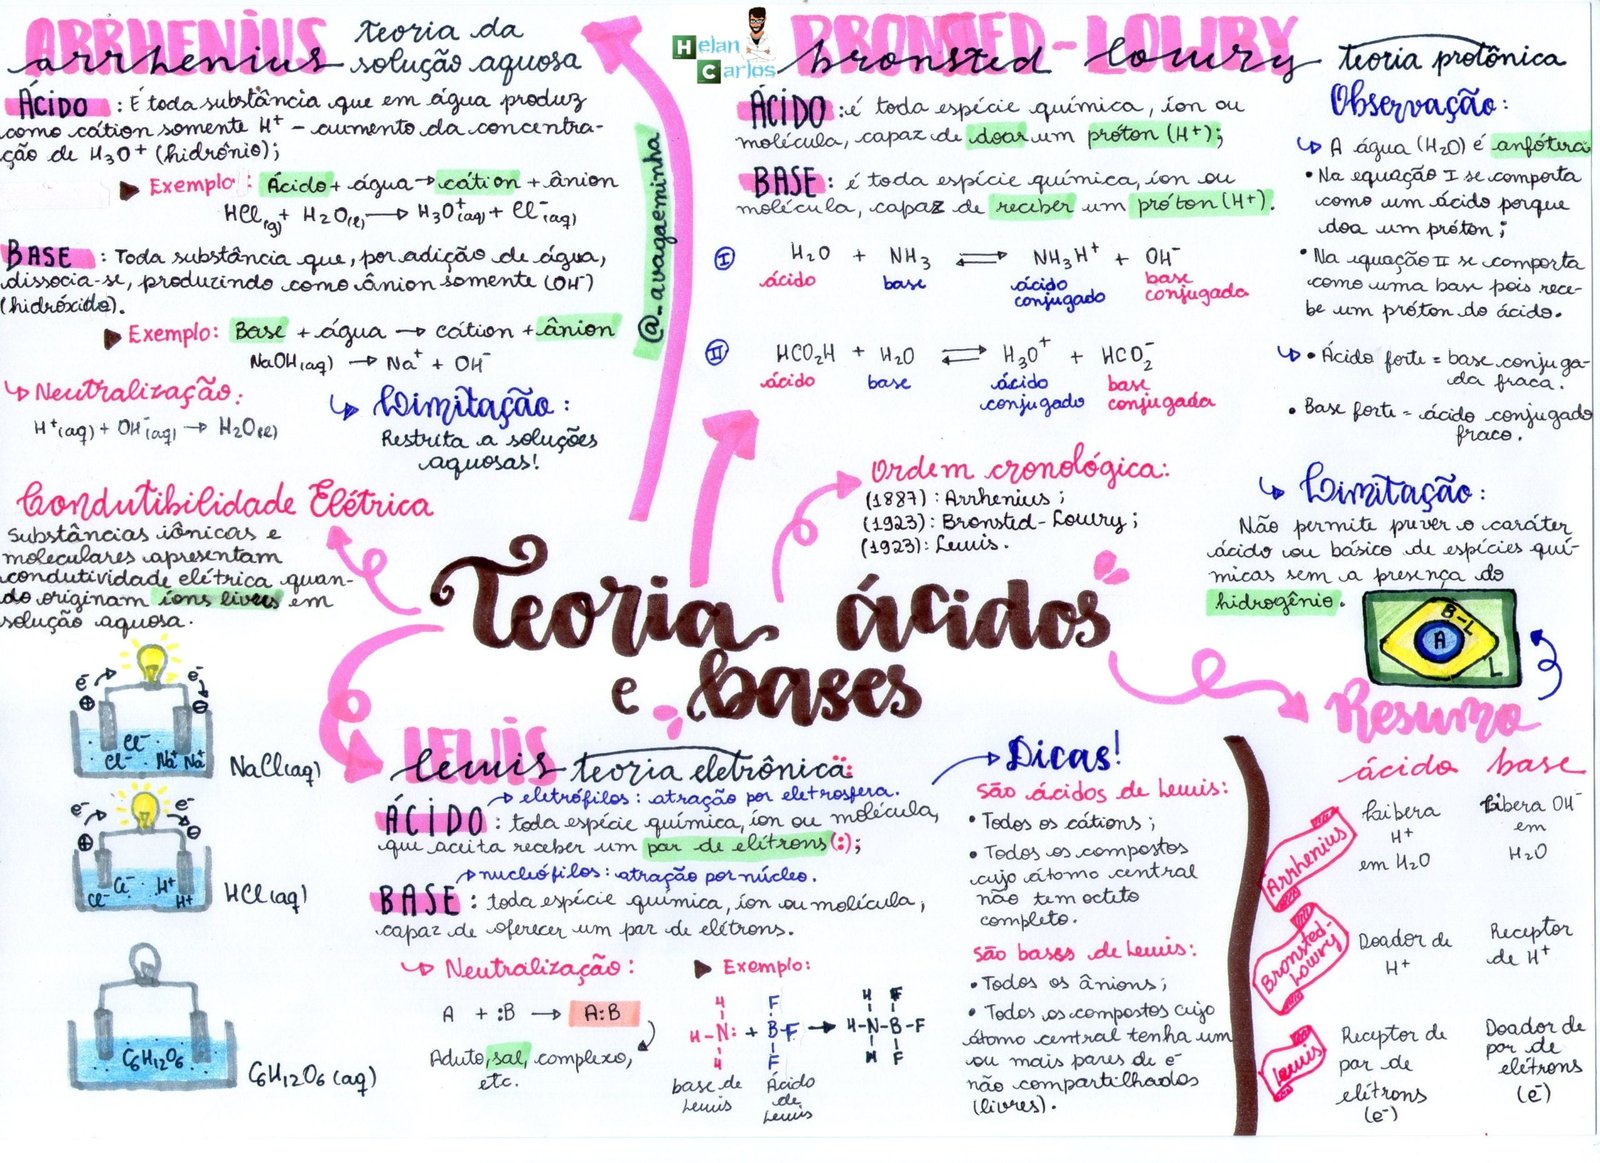 ARRHENIUS
arrhenius
teoria da
solução aquosa
ÁCIDO: É toda substância que em água produz
como cátion somente H⁺ - aumento da concentra-
ção de H₃O⁺ (hidrônio);
Exemplo: Ácido + água → cátion + ânion
HCl(g) + H₂O(l) → H₃O⁺(aq) + Cl⁻(aq)
BASE: Toda substância que, por adição de água,
dissocia-se, produzindo como ânion somente (OH⁻)
(hidróxido).
Exemplo: Base + água → cátion + ânion
NaOH(aq) → Na⁺ + OH⁻
Neutralização:
H⁺(aq) + OH⁻(aq) → H₂O(l)
Limitação:
Restrita a soluções
aquosas!
@_avagaeminha
Helan
Carlos
BRONSTED-LOWRY
bronsted lowry
teoria protônica
ÁCIDO: é toda espécie química, íon ou
molécula, capaz de doar um próton (H+);
BASE: é toda espécie química, íon ou
molécula, capaz de receber um próton (H+).
I H₂O + NH₃ ⇌ NH₃H⁺ + OH⁻
ácido base ácido conjugado base conjugada
II HCO₂H + H₂O ⇌ H₃O⁺ + HCO₂⁻
ácido base ácido conjugado base conjugada
Observação:
A água (H₂O) é anfótera
• Na equação I se comporta
como um ácido porque
doa um próton;
• Na equação II se comporta
como uma base pois rece-
be um próton do ácido.
• Ácido forte = base conjuga-
da fraca.
• Base forte = ácido conjugado
fraco.
Limitação:
Não permite prever o caráter
ácido ou básico de espécies quí-
micas sem a presença do
hidrogênio.
Ordem cronológica:
(1887): Arrhenius;
(1923): Bronsted-Lowry;
(1923): Lewis.
Condutibilidade Elétrica
Substâncias iônicas e
moleculares apresentam
condutividade elétrica quan-
do originam íons livres em
solução aquosa.
e⁻ e⁻
⊕ ⊖
Cl⁻ Cl⁻ Na⁺ Na⁺
NaCl(aq)
e⁻ e⁻
⊕ ⊖
Cl⁻ Cl⁻ H⁺ H⁺
HCl(aq)
C₆H₁₂O₆
C₆H₁₂O₆(aq)
Teoria ácidos
e bases
LEWIS
lewis teoria eletrônica:
eletrófilos: atração por eletrosfera.
ÁCIDO: toda espécie química, íon ou molécula,
que aceita receber um par de elétrons(:);
nucleófilos: atração por núcleo.
BASE: toda espécie química, íon ou molécula,
capaz de oferecer um par de elétrons.
Neutralização:
A + :B → A:B
Aduto, sal, complexo,
etc.
Exemplo:
H F H F
H-N: + B-F → H-N-B-F
H F H F
base de
Lewis
Ácido
de
Lewis
Dicas!
São ácidos de Lewis:
• Todos os cátions;
• Todos os compostos
cujo átomo central
não tem octeto
completo.
São bases de Lewis:
• Todos os ânions;
• Todos os compostos cujo
átomo central tenha um
ou mais pares de e⁻
não compartilhados
(livres).
B-L
A
L
Resumo
ácido base
Arrhenius
Libera
H⁺
em H₂O
Libera OH⁻
em
H₂O
Bronsted-
Lowry
Doador de
H⁺
Receptor
de H⁺
Lewis
Receptor de
par de
elétrons
(e⁻)
Doador de
par de
elétrons
(e⁻)